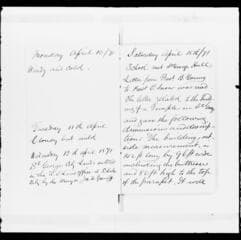 Monday April 10/71
Windy and cold.
Tuesday 11th April
Clowdy but mild
Wednesday 12th April 1871
St George City Lands entered
in the U.S. Land office at Salt Lake
City by the Mayor
Saturday April 15th/71
School and Meeting Hall
Letter from Prest B. Young
to Prest E Snow was read
The letter related to the build-
ing of a Temple in St George
and gave the following
dimensions and descrip-
tion. The building out
side measurement, is
142 ft long by 96 ft wide
including the buttresses
and 80 ft high to the top
of the parapet. It will